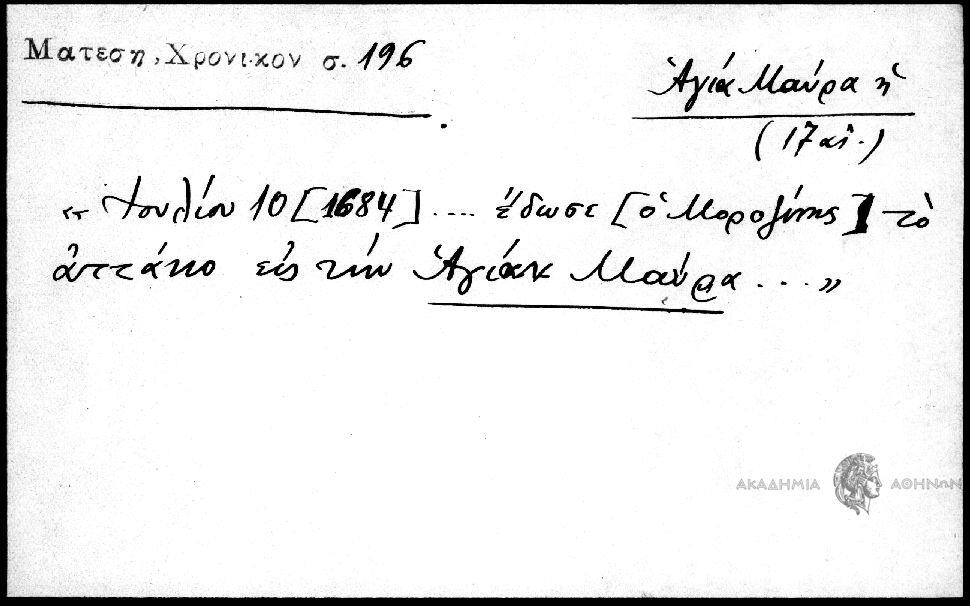 Ματεση, Χρονικον σ. 196
Ἁγιά Μαύρα ἡ
(17 αἰ.)
« Ἰουλίου 10 [1684] .... ἔδωσε [ὁ Μοροζίνης] τὸ
ἀττάκο εἰς τὴν Ἁγίαν Μαύρα ... »
ΑΚΑΔΗΜΙΑ ΑΘΗΝΩΝ